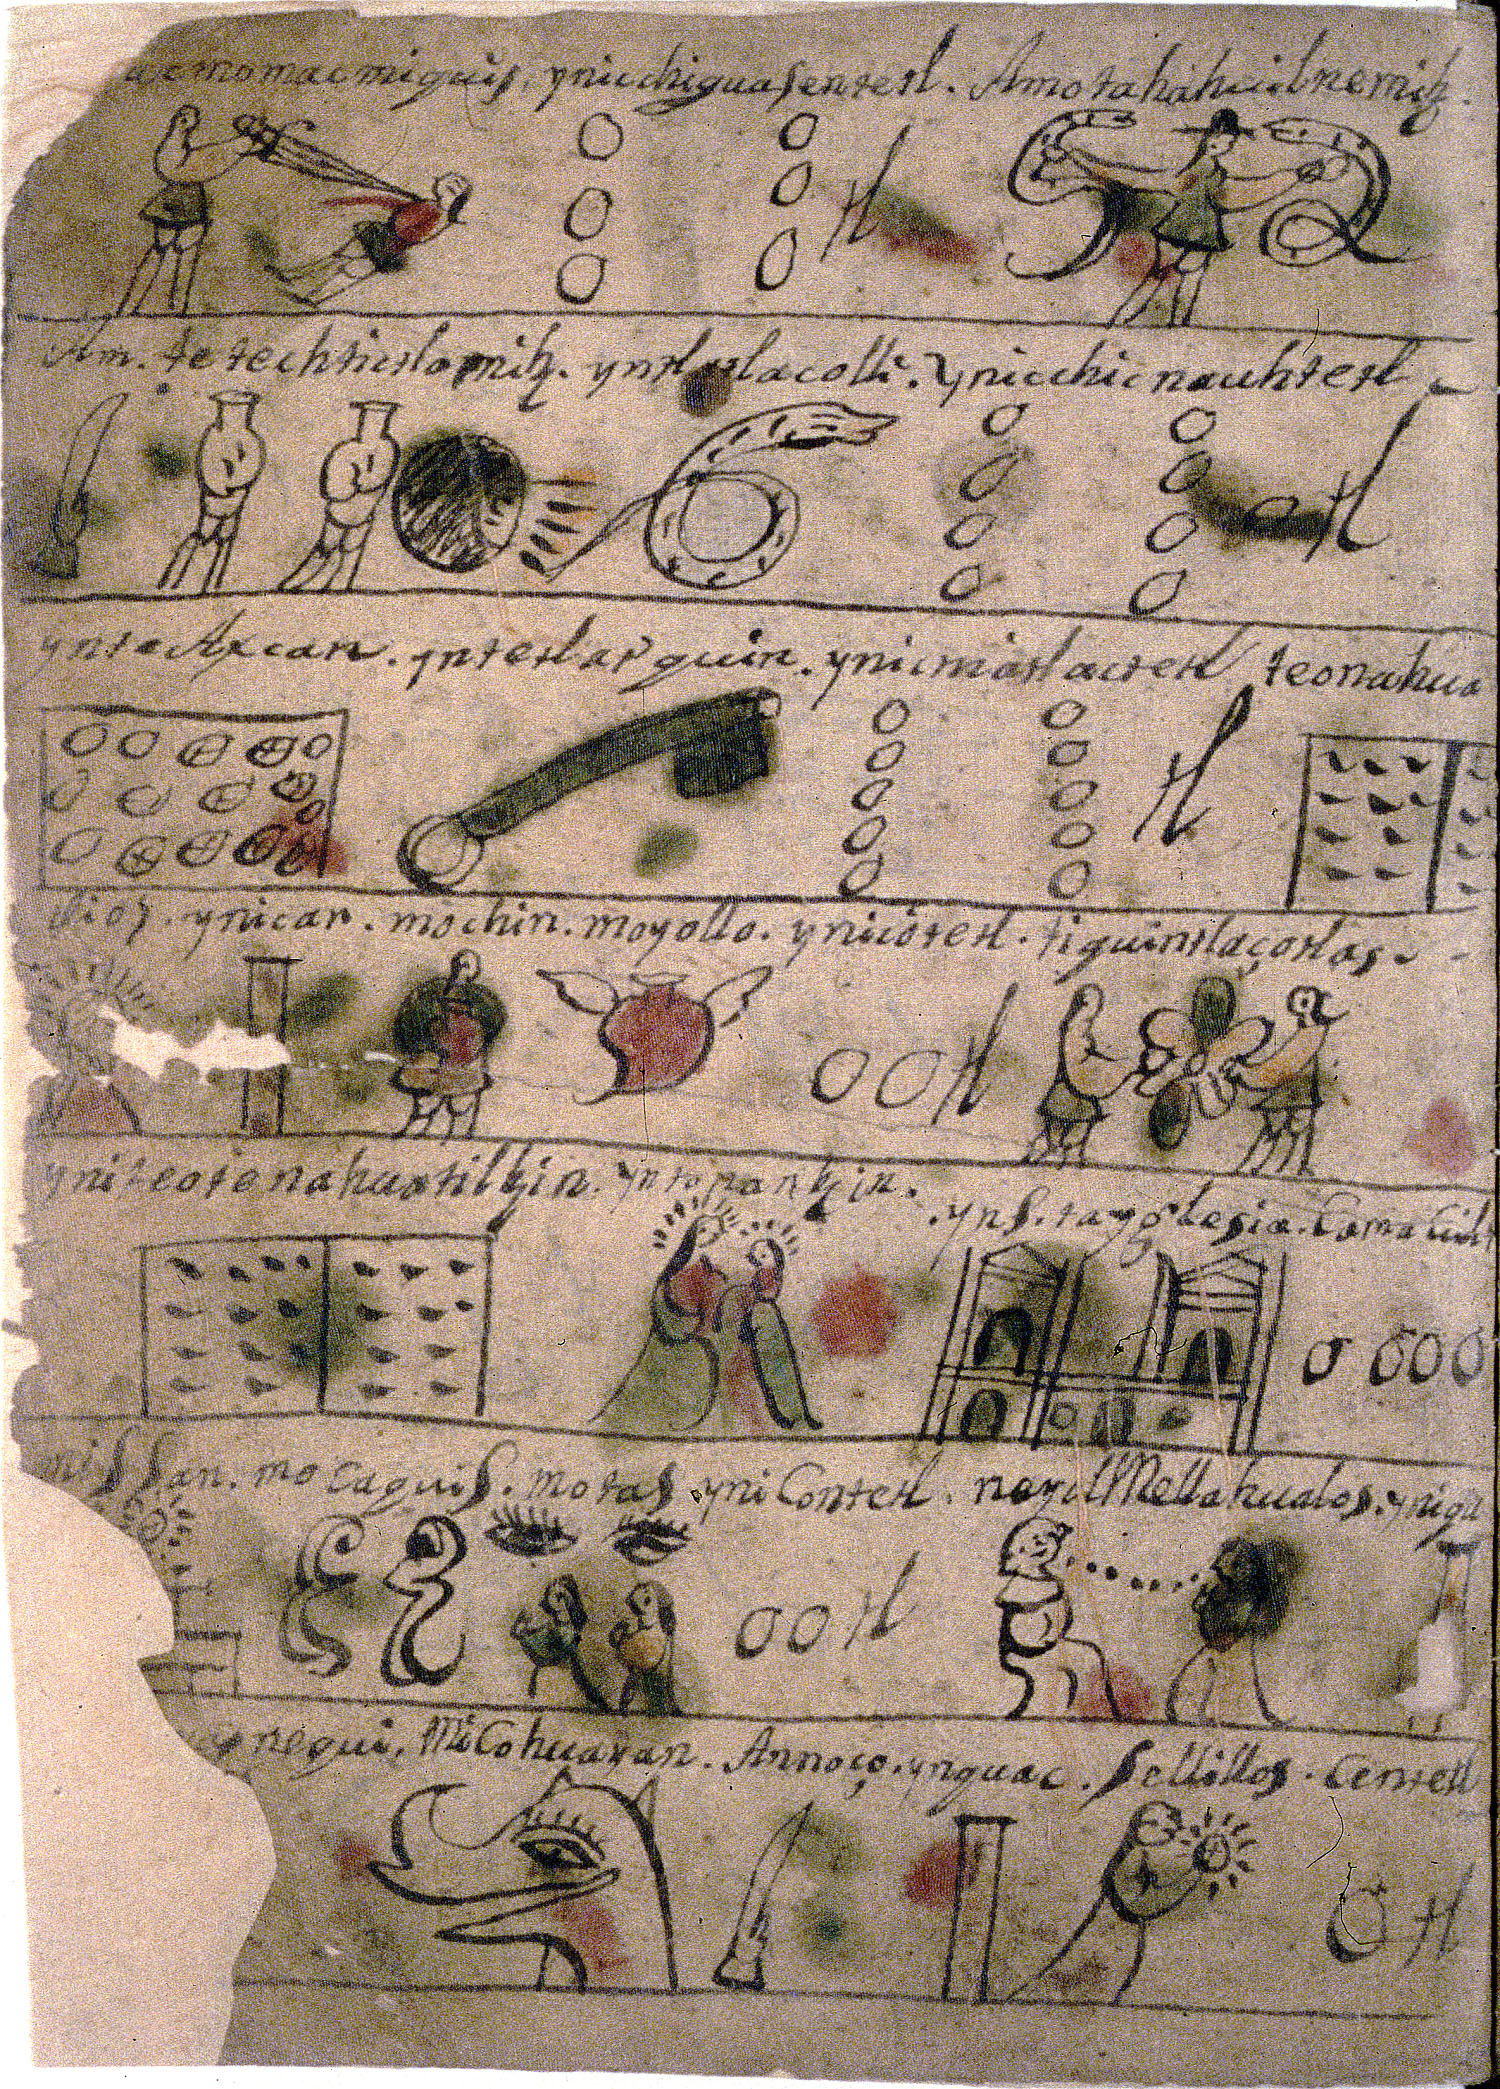 ynicchiguasentetl. Amotahahuilnemitz.
Am. tetechtictlamitz. yntlatlacolli. ynicchicnauhtetl
ynteAxcan. yntetlatquin. ynicmatlactetl teonahua
dios. ynican. mochin. moyollo. ynicotetl. tiquintlaçotlas
yniteotenahuatiltzin. yntonantzin. ynS.tayglesia.
missan. mocaquis. motas yniContetl. neyolMellahualos. yniqu
Micohuayan. Annoço. ynquac. Sellillos. Centetl